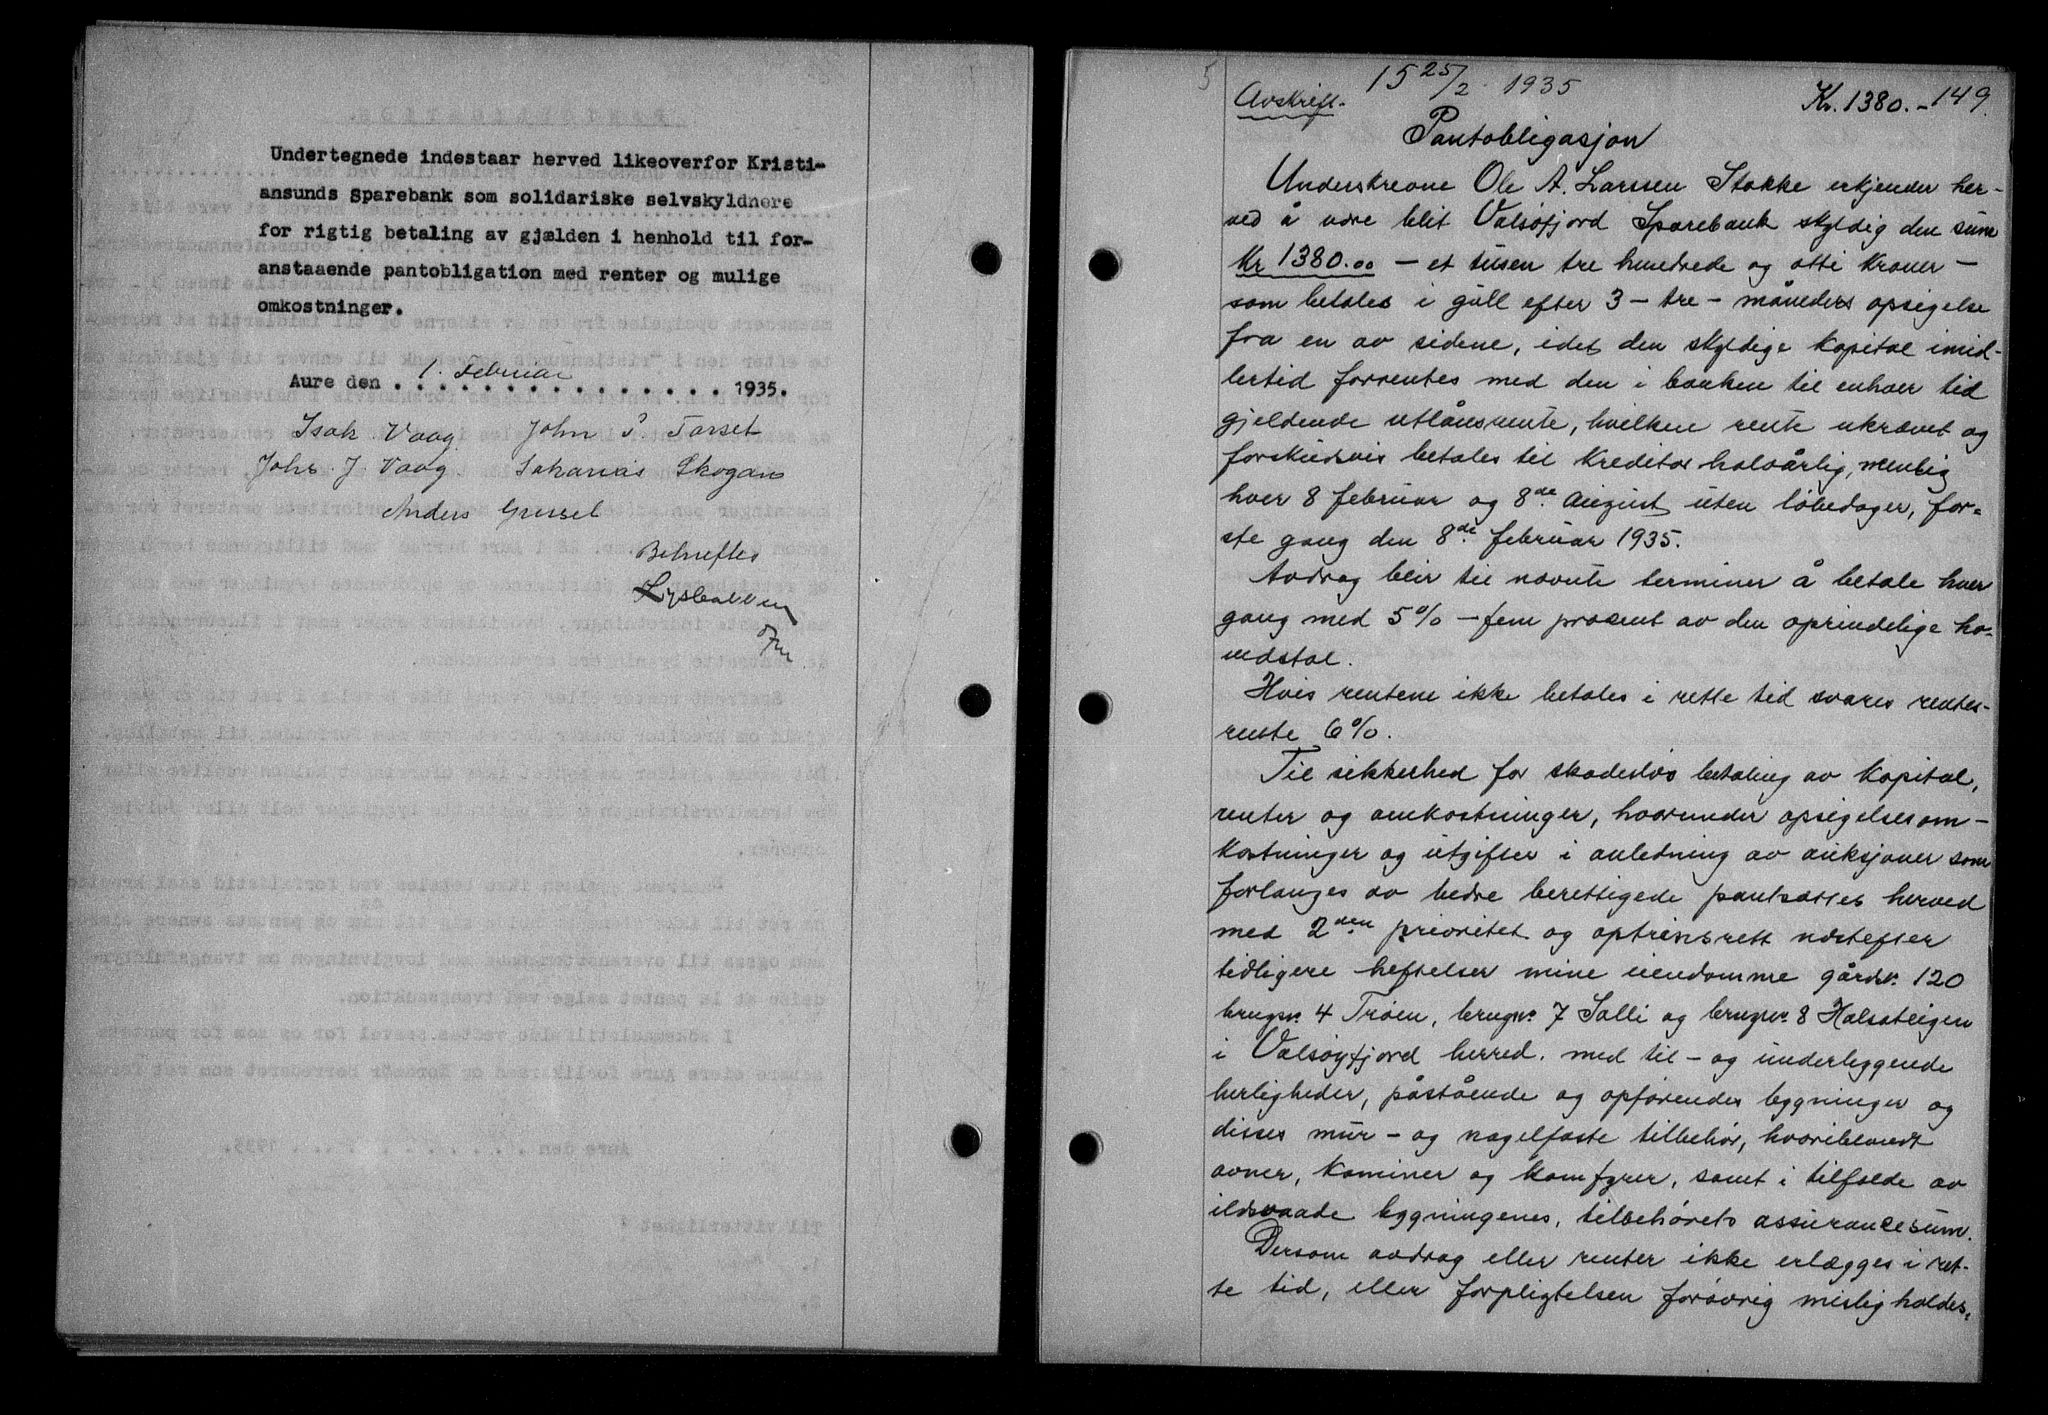 Undertegnede indestaar herved likeoverfor Kristi-
ansunds Sparebank som solidariske selvskyldnere
for rigtig betaling av gjælden i henhold til for-
anstaaende pantobligation med renter og mulige
omkostninger.
Aure den 1. Februar 1935.
Isak Vaag. John P. Torset
Johs. J. Vaag Sakarias Skogan
Anders Grussel
Bekreftes
15 25/2 1935
149.
Avskrift. Kr. 1380.-
Pantobligasjon
Underskrevne Ole A. Larssen Stokke erkjender her-
ved å være blit Valsøfjord Sparebank skyldig den sum
Kr 1380.00 - et tusen tre hundrede og otti kroner -
som betales i gull efter 3 - tre - måneders opsigelse
fra en av sidene, idet den skyldige kapital imid-
lertid forrentes med den i banken til enhver tid
gjeldende utlånsrente, hvilken rente ukrævet og
forskudsvis betales til kreditor halvårlig, nemlig
hver 8 februar og 8de August uten løbedager, før-
ste gang den 8de februar 1935.
Avdrag blir til nævnte terminer å betale hver
gang med 5% - fem prosent av den oprindelige ho-
vedstol.
Hvis rentene ikke betales i rette tid svares rentes-
rente 6%.
Til sikkerhed for skadesløs betaling av kapital,
renter og omkostninger, hvorunder opsigelsesom-
kostninger og utgifter i anledning av auksjoner som
forlanges av bedre berettigede pantsættes herved
med 2den prioritet og optrinsrett næstefter
tidligere heftelser mine eiendomme gårdsnr. 120
brugsnr. 4 Trøen, brugsnr. 7 Solli og brugsnr. 8 Halsateigen
i Valsøyfjord herred. med til - og underliggende
herligheder, påstående og opførendes bygninger og
disses mur - og nagelfaste tilbehør, hvoriblandt
ovner, kaminer og komfyrer, samt i tilfælde av
ildsvaade bygningenes, tilbehørets assurancesum.
Dersom avdrag eller renter ikke erlægges i ret-
te tid, eller forpligtelsen forøvrig misligholdes,